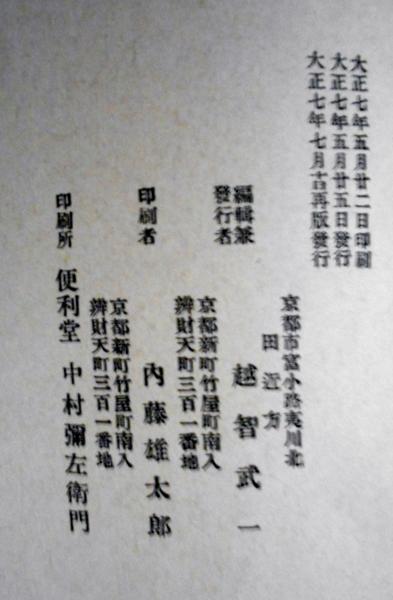 大正七年五月廿二日印刷
大正七年五月廿五日發行
大正七年七月十日再版發行
京都市富小路夷川北
田近方
編輯兼
發行者
越智武一
京都新町竹屋町南入
辨財天町三百一番地
印刷者
內藤雄太郎
京都新町竹屋町南入
辨財天町三百一番地
印刷所
便利堂 中村彌左衞門